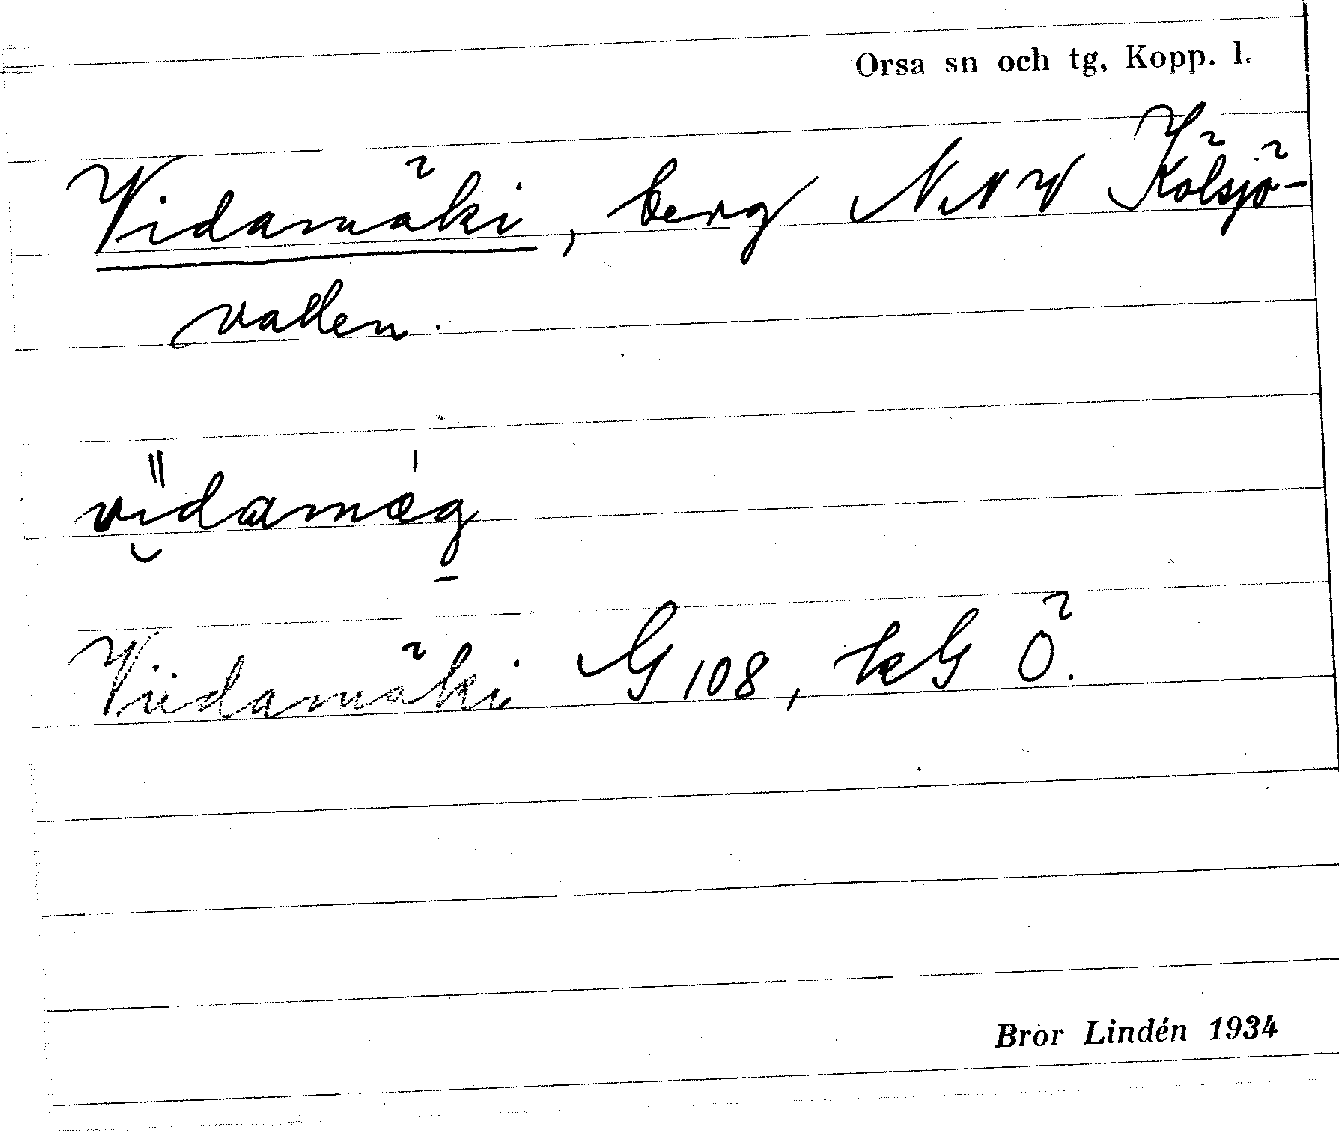 Orsa sn och tg, Kopp. l.
Vidamäki, berg NNV Kölsjö-
vallen.
vìdamæg
Viidamäki G 108, kG Ö.
Bror Lindén 1934